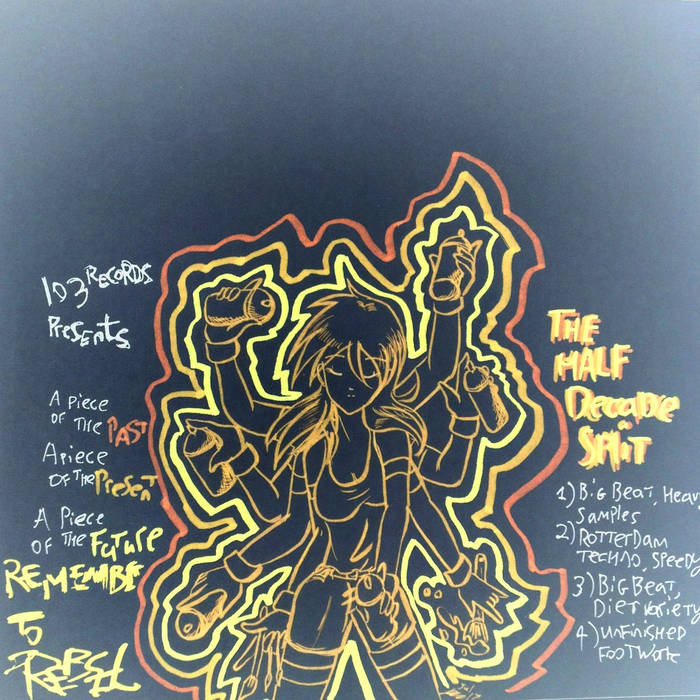 103 RECORDS
Presents
A Piece
OF THE PAST
A Piece
OF THE Present
A Piece
OF THE Future
REMEMBE
TO
REBEL
THE
HALF
Decade
SPLIT
1) BiG BeaT, Heav
Samples
2) ROTTERDAM
TECHNO, SPEEDY
3) BiG BEAT,
DieT VARieTY
4) UNFiNiSHED
FOOTWORK